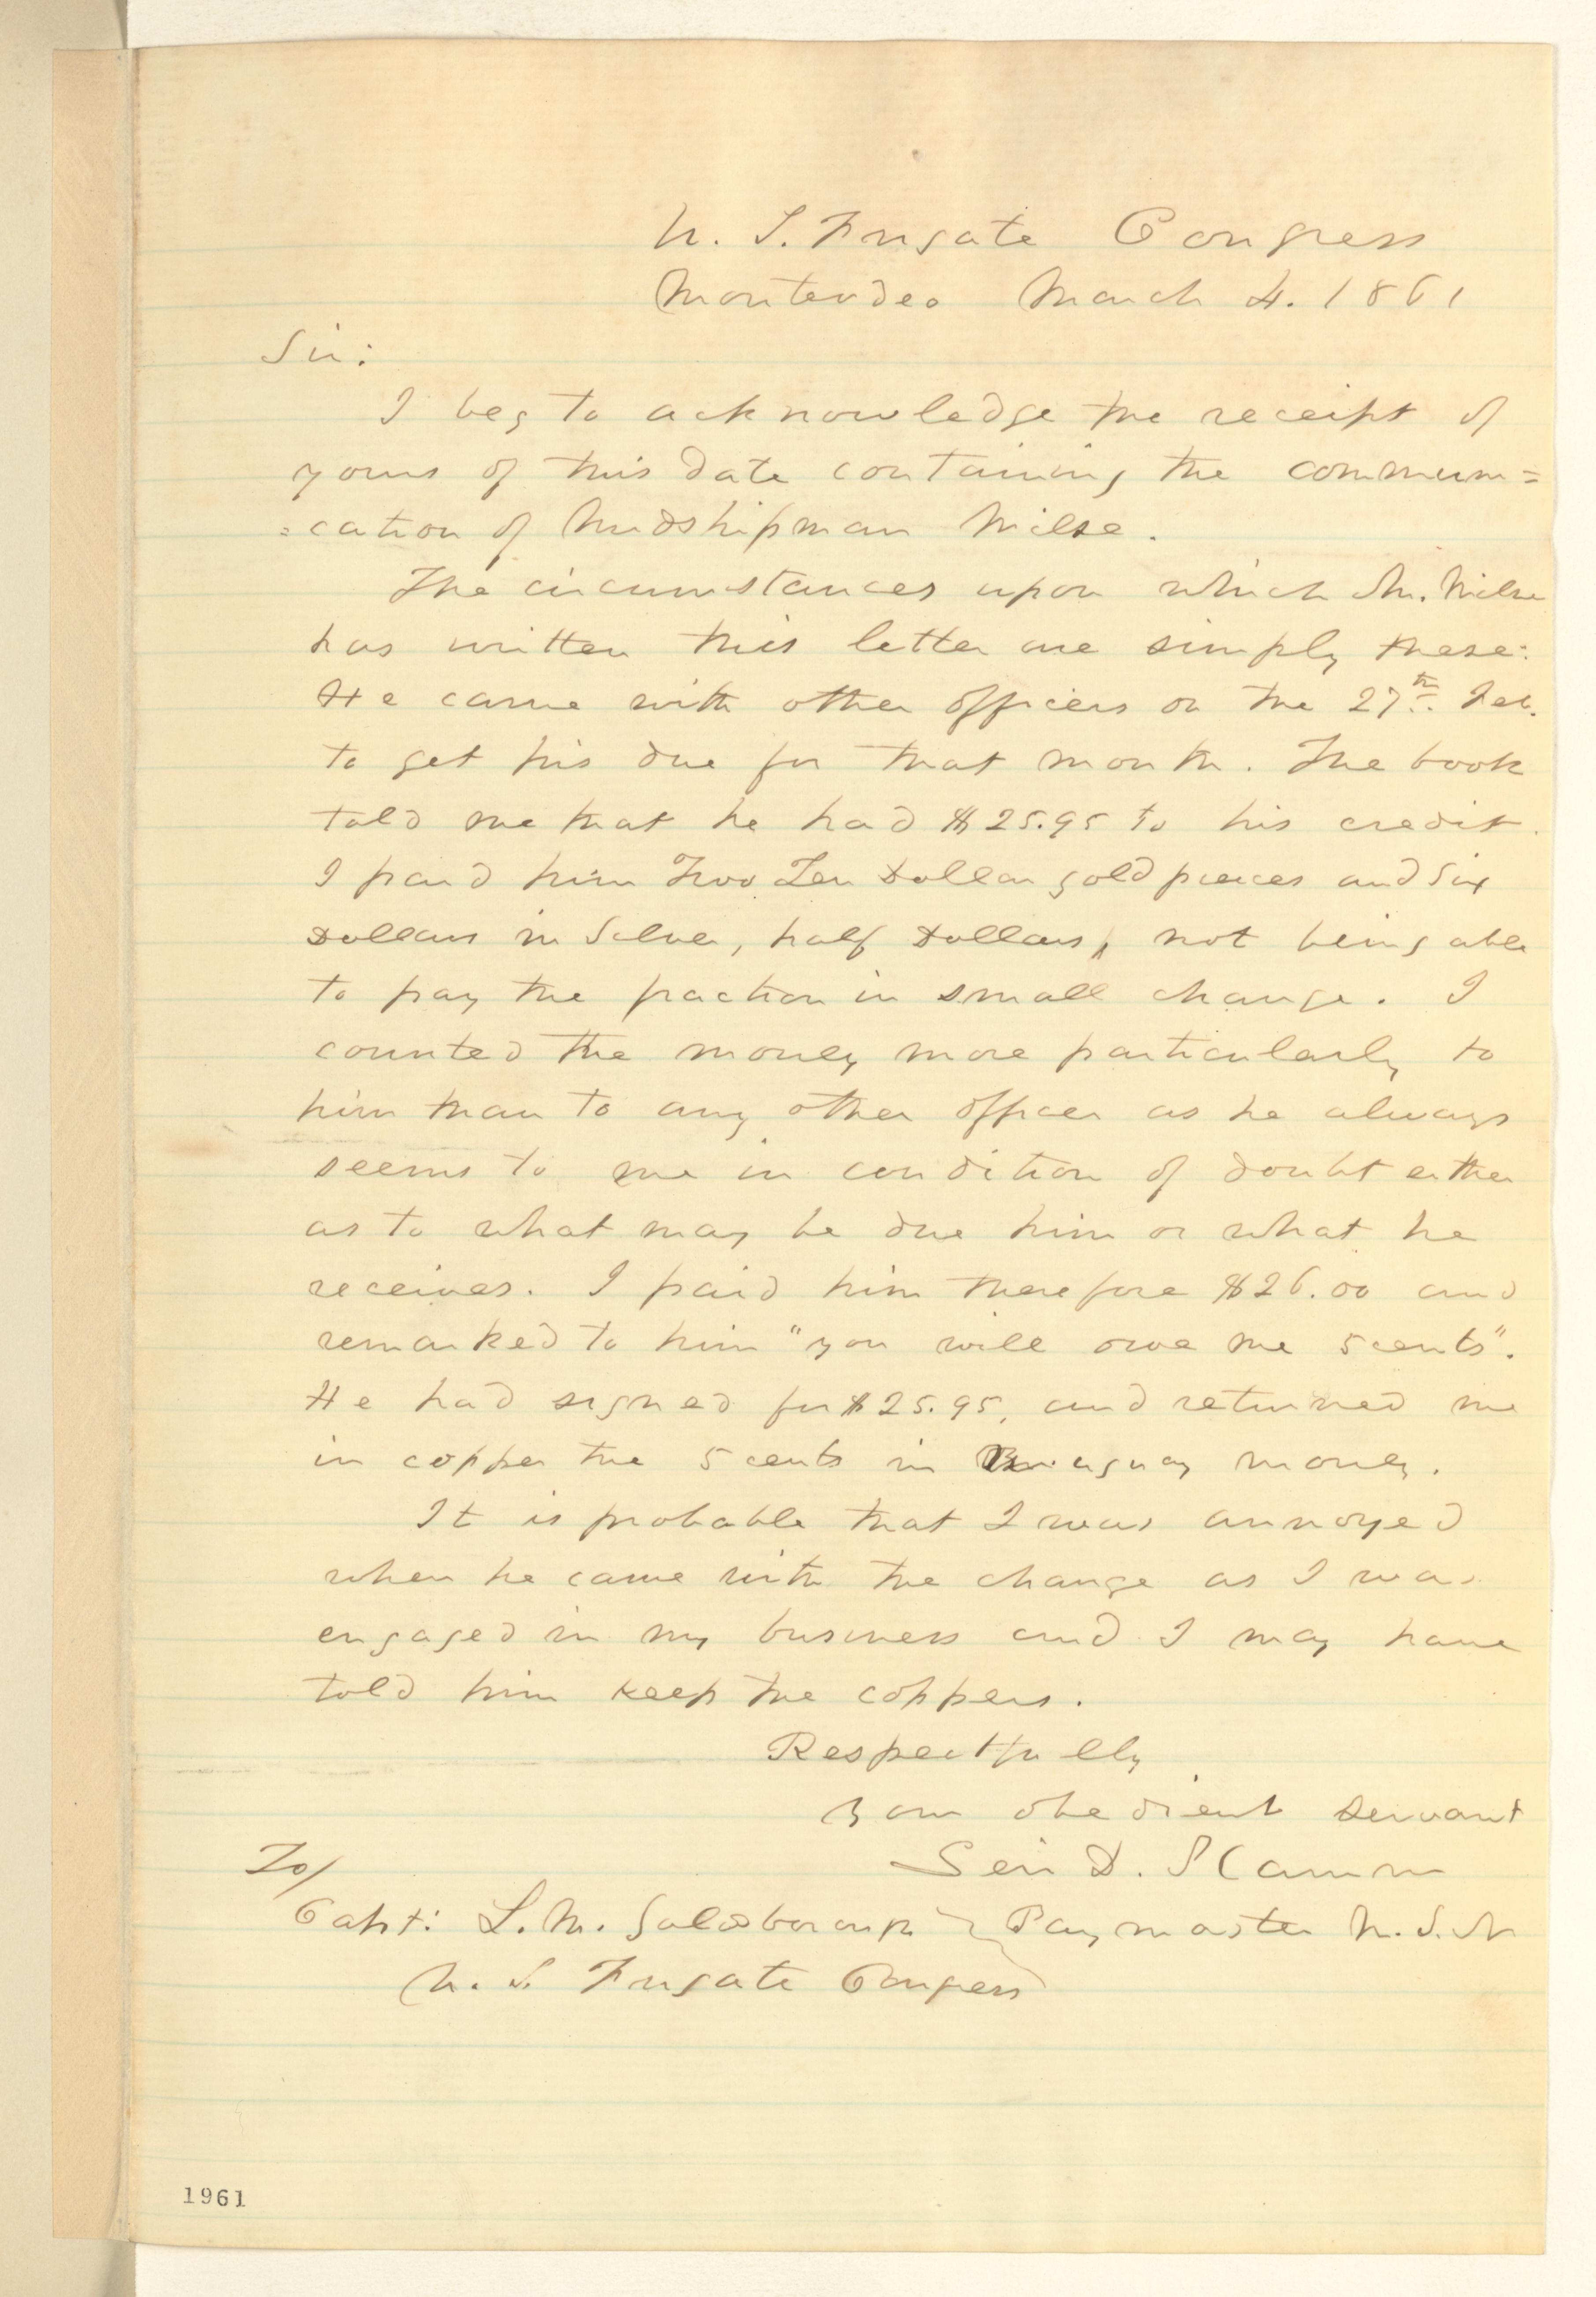 U. S. Frigate Congress
Montevideo March 4. 1861
Sir:
I beg to acknowledge the receipt of
yours of this date containing the communi=
=cation of Midshipman
The circumstances upon which Mr.
has written this letter are simply these:
He came with other officers on the 27th. Feb.
to get his due for that month. The book
told me that he had $25.95 to his credit.
I paid him Two Ten Dollar gold pieces and Six
Dollars in Silver, half Dollars, not being able
to pay the fraction in small change. I
counted the money more particularly to
him than to any other officer as he always
seems to me in condition of doubt either
as to what may be due him or what he
receives. I paid him therefore $26.00 and
remarked to him "you will owe me 5 cents".
He had signed for $25.95, and returned me
in copper the 5 cents in money.
It is probable that I was annoyed
when he came with the change as I was
engaged in my business and I may have
told him keep the coppers.
Respectfully
Your obedient Servant
To/
D.
Capt: L. M. Goldsborough } Paymaster U. S. N
U. S. Frigate Congress
1961